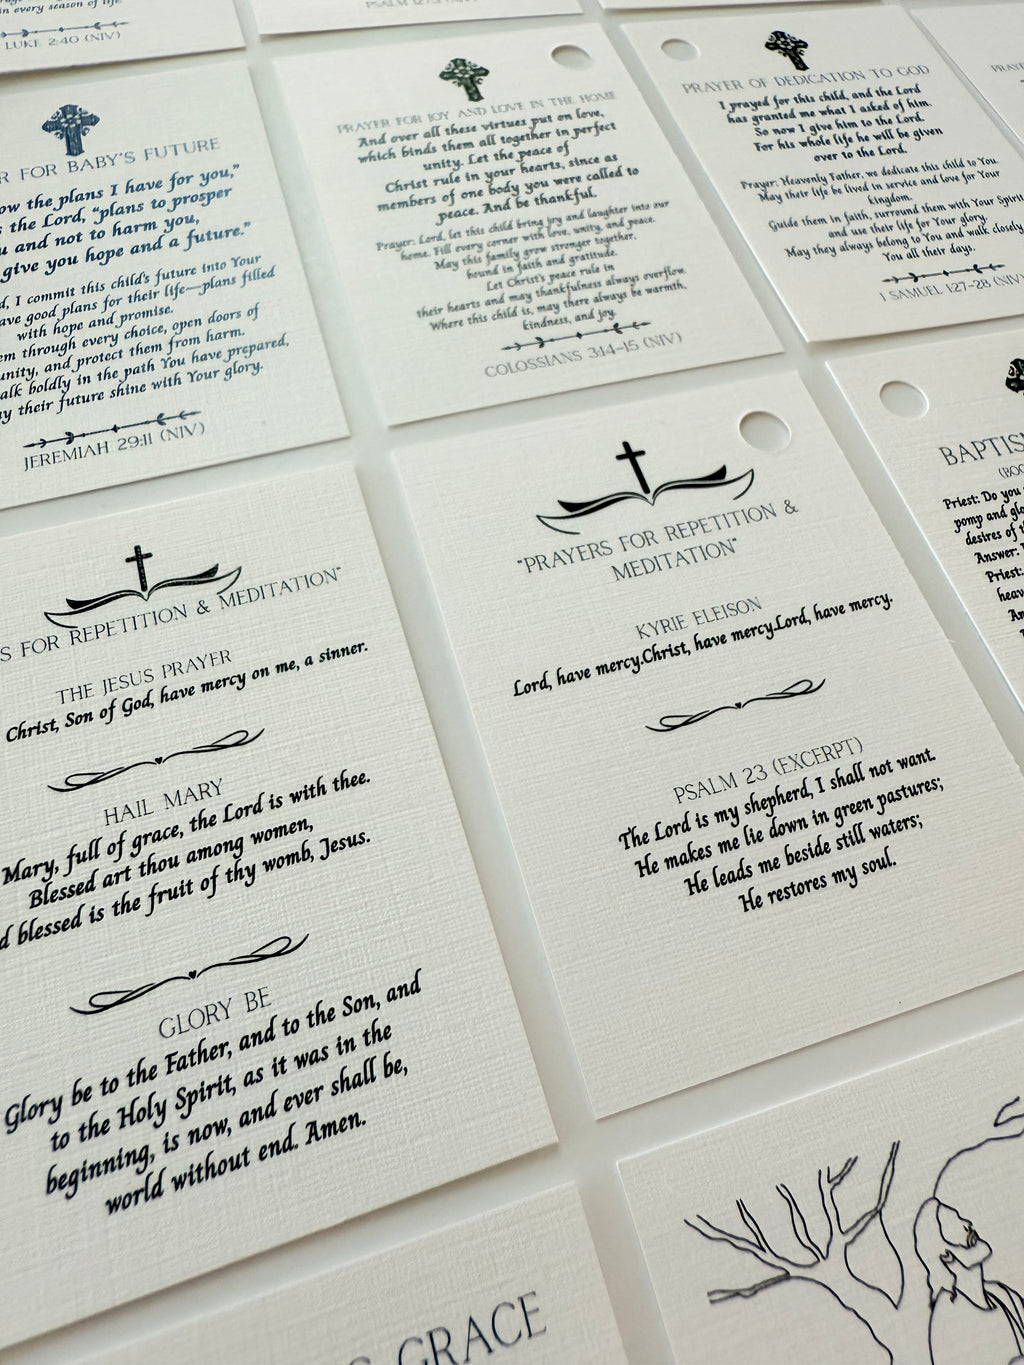 in every season of life.
LUKE 2:40 (NIV)
FOR BABY'S FUTURE
the plans I have for you,"
the Lord, "plans to prosper
and not to harm you,
give you hope and a future."
I commit this child's future into Your
good plans for their life—plans filled
with hope and promise.
through every choice, open doors of
and protect them from harm.
boldly in the path You have prepared,
their future shine with Your glory.
JEREMIAH 29:11 (NIV)
PRAYER FOR JOY AND LOVE IN THE HOME
And over all these virtues put on love,
which binds them all together in perfect
unity. Let the peace of
Christ rule in your hearts, since as
members of one body you were called to
peace. And be thankful.
Prayer: Lord, let this child bring joy and laughter into our
home. Fill every corner with love, unity, and peace.
May this family grow stronger together,
bound in faith and gratitude.
Let Christ's peace rule in
their hearts and may thankfulness always overflow.
Where this child is, may there always be warmth,
kindness, and joy.
COLOSSIANS 3:14-15 (NIV)
PRAYER OF DEDICATION TO GOD
I prayed for this child, and the Lord
has granted me what I asked of him.
So now I give him to the Lord.
For his whole life he will be given
over to the Lord.
Prayer: Heavenly Father, we dedicate this child to You.
May their life be lived in service and love for Your
kingdom.
Guide them in faith, surround them with Your Spirit
and use their life for Your glory.
May they always belong to You and walk closely
You all their days.
1 SAMUEL 1:27-28 (NIV)
FOR REPETITION & MEDITATION"
THE JESUS PRAYER
Christ, Son of God, have mercy on me, a sinner.
HAIL MARY
Mary, full of grace, the Lord is with thee.
Blessed art thou among women,
blessed is the fruit of thy womb, Jesus.
GLORY BE
Glory be to the Father, and to the Son, and
to the Holy Spirit, as it was in the
beginning, is now, and ever shall be,
world without end. Amen.
"PRAYERS FOR REPETITION &
MEDITATION"
KYRIE ELEISON
Lord, have mercy.Christ, have mercy.Lord, have mercy.
PSALM 23 (EXCERPT)
The Lord is my shepherd, I shall not want.
He makes me lie down in green pastures;
He leads me beside still waters;
He restores my soul.
Priest: Do you
pomp and
desires of
Answer:
Priest:
GRACE